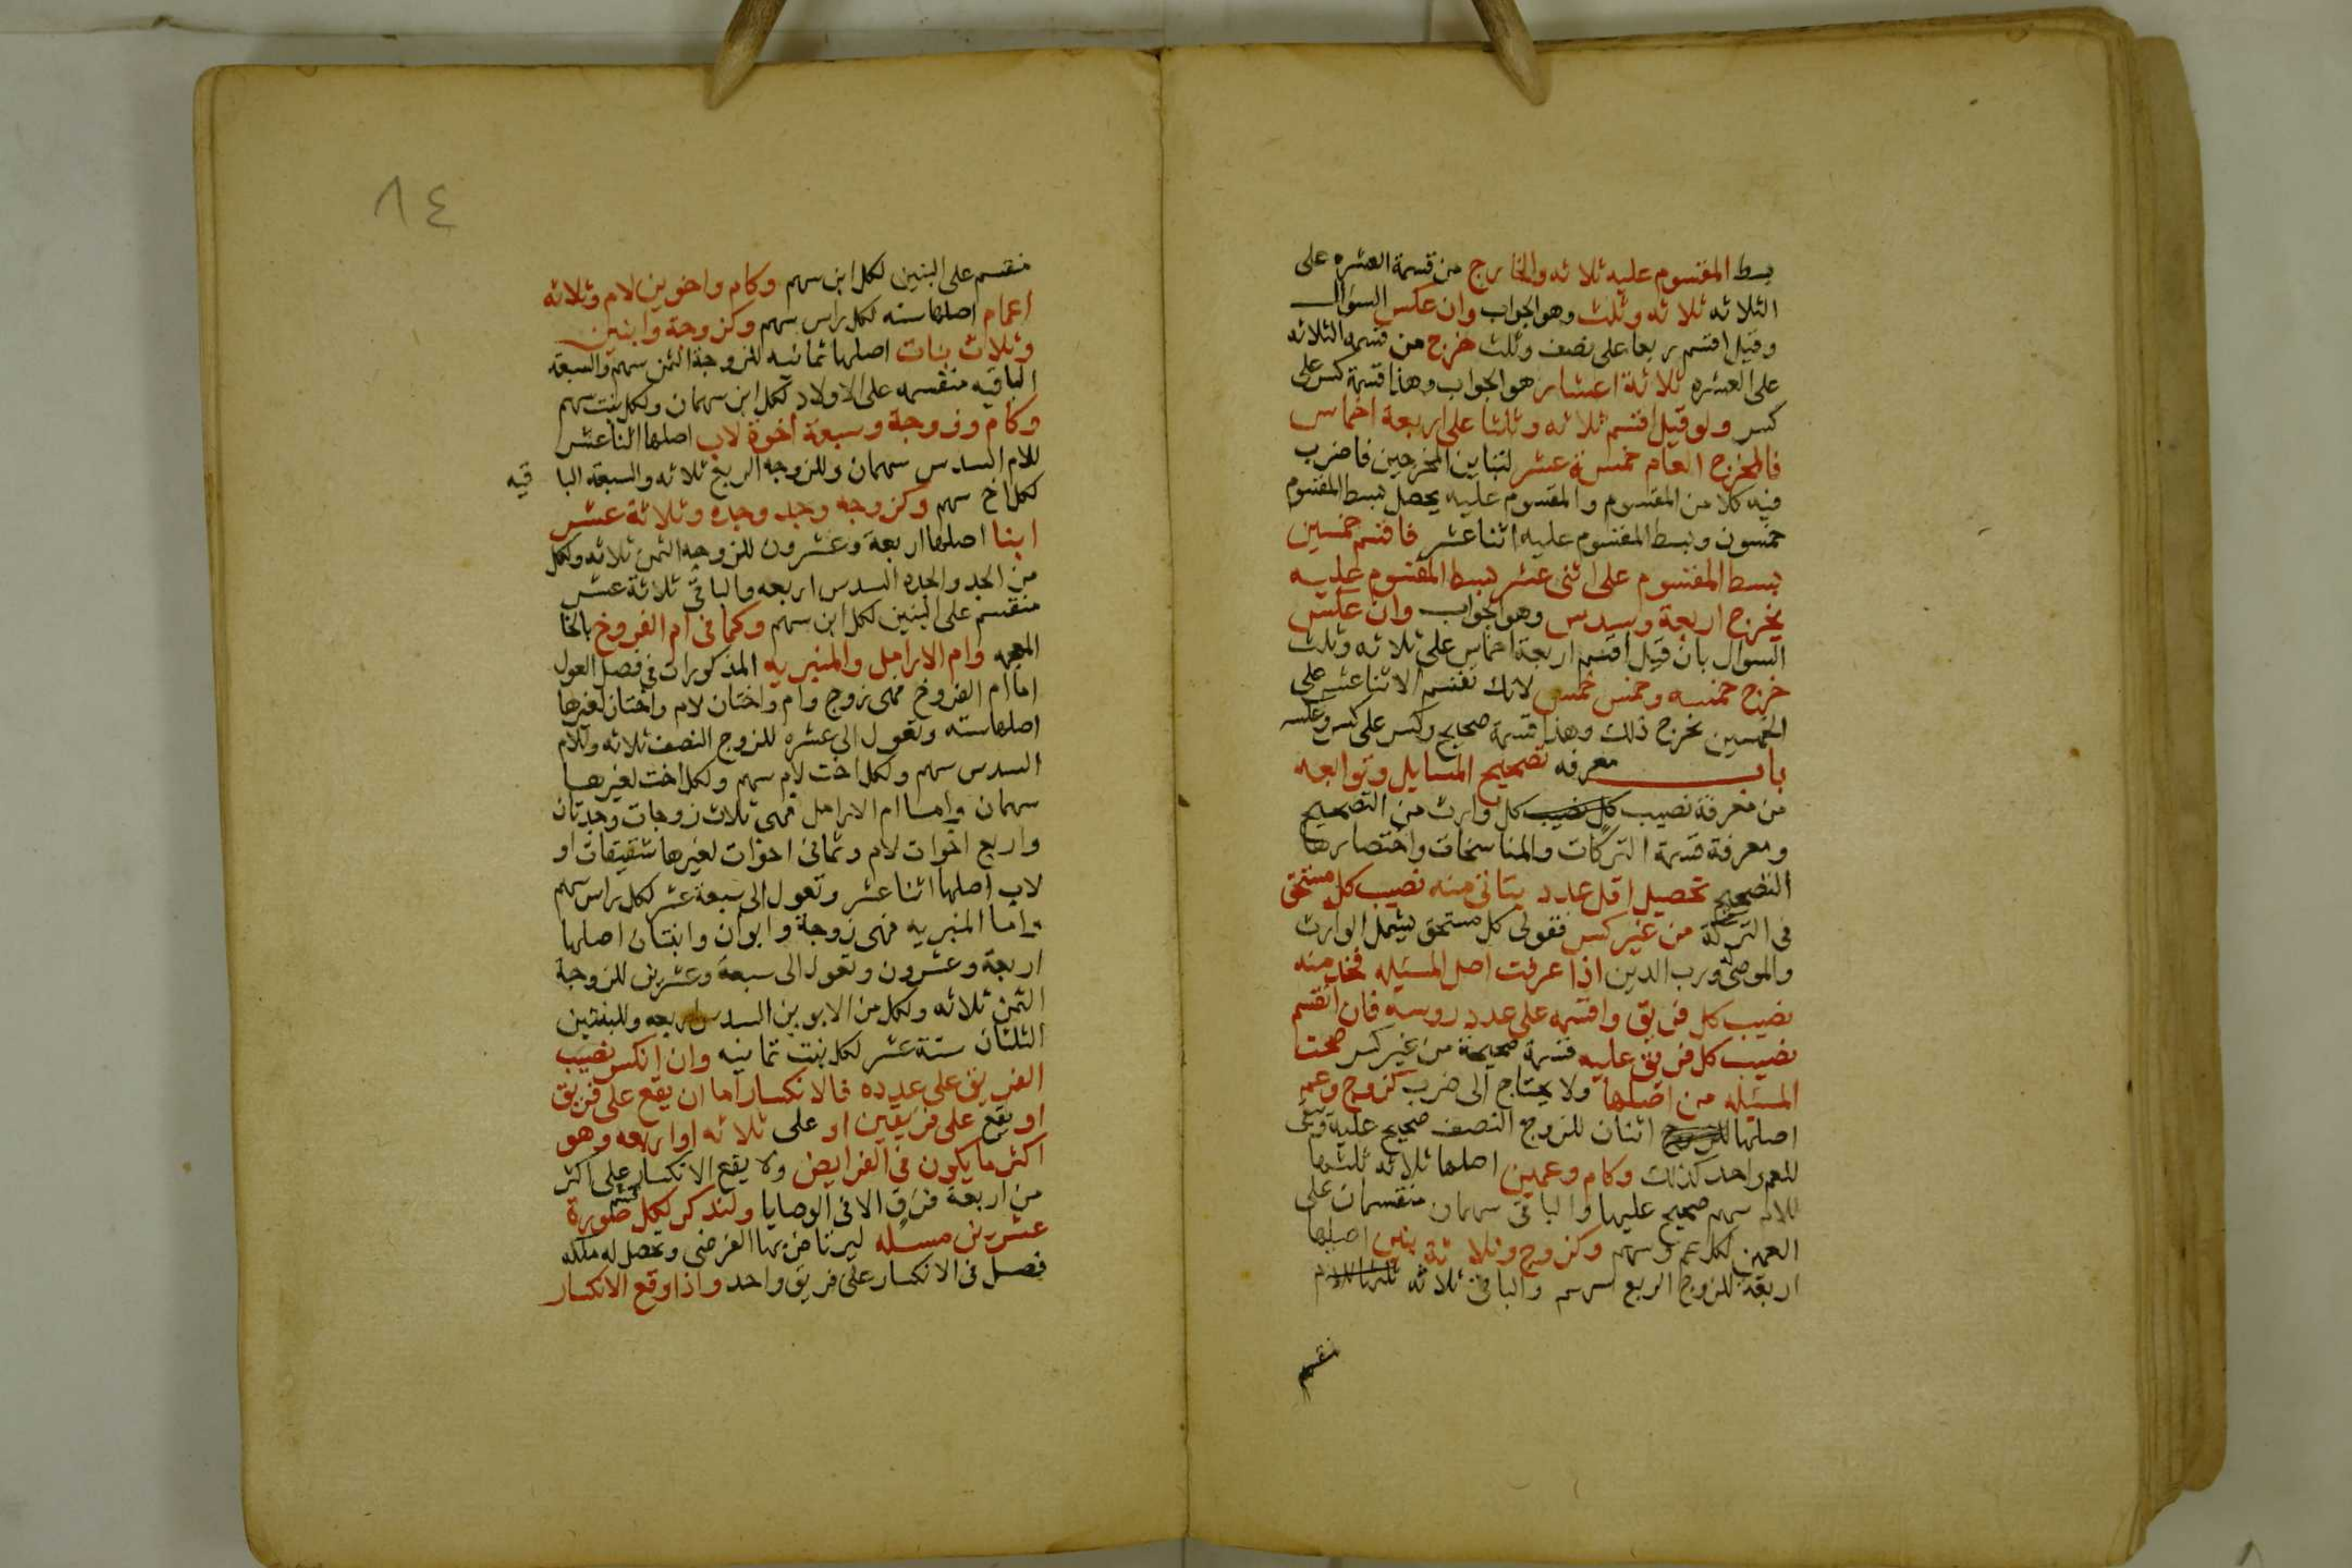 بسط المقسوم عليه ثلاثه والخارج من قسمة العشره على
الثلاثه ثلاثه وثلث وهو الجواب وان عكس السوال
وقيل اقسم ربعا على نصف وثلث خرج من قسمه الثلاثه
على العشره ثلاثة اعشار هو الجواب وهذا قسمة كسر على
كسر ولو قيل اقسم ثلاثه وثلثا على اربعة اخماس
فالمخرج العام خمسة عشر لتباين المخرجين فاضرب
فيه كلا من المقسوم والمقسوم عليه يحصل بسط المقسوم
خمسون وبسط المقسوم عليه اثنا عشر فاقسم خمسين
بسط المقسوم على اثنى عشر بسط المقسوم عليه
يخرج اربعة وسدس وهو الجواب وان عكس
السوال بان قيل اقسم اربعة اخماس على ثلاثه وثلث
خرج خمسه وخمس خمس لانك تقسم الاثنا عشر على
الخمسين يخرج ذلك وهذا قسمة صحيح وكسر على كسر وعكسه
باب معرفه تصحيح المسايل وتوابعه
من معرفة نصيب كل نصيب كل وارث من التصحيح
ومعرفة قسمة التركات والمناسخات واختصارها
التصحيح تحصيل اقل عدد يتاتى منه نصيب كل مستحق
فى التركة من غير كسر فقولى كل مستحق يشمل الوارث
والموصى له ورب الدين اذا عرفت اصل المسيله فخذ منه
نصيب كل فريق واقسمه على عدد روسه فان انقسم
نصيب كل فريق عليه قسمة صحيحة من غير كسر صحت
المسيله من اصلها ولا يحتاج الى ضرب كزوج وعم
اصلها للزوج اثنان للزوج النصف صحيح عليه وبقى
للعم واحد كذلك وكام وعمين اصلها ثلاثه ثلثها
للام سهم صحيح عليها والباقى سهمان منقسمان على
العمين لكل عم سهم وكزوج وثلاثة بنين اصلها
اربعة للزوج الربع سهم والباقى ثلاثه ثلثها للام
منقسم
٨٤
منقسم على البنين لكل ابن سهم وكام واخوين لام وثلاثه
اعمام اصلها سته لكل راس سهم وكزوجة وابنين
وثلاث بنات اصلها ثمانيه للزوجة الثمن سهم والسبعة
الباقيه منقسمه على الاولاد لكل ابن سهمان ولكل بنت سهم
وكام وزوجة وسبعة اخوة لاب اصلها اثنا عشر
للام السدس سهمان وللزوجه الربع ثلاثه والسبعة البا قيه
لكل اخ سهم وكزوجه وجد وجده وثلاثة عشر
ابنا اصلها اربعة وعشرون للزوجه الثمن ثلاثه ولكل
من الجد والجده السدس اربعه والباقى ثلاثة عشر
منقسم على البنين لكل ابن سهم وكما فى ام الفروخ بالخا
المعجمه وام الارامل والمنبريه المذكورات فى فصل العول
اما ام الفروخ فهى زوج وام واختان لام واختان لغيرها
اصلها سته وتعول الى عشره للزوج النصف ثلاثه وللام
السدس سهم ولكل اخت لام سهم ولكل اخت لغيرها
سهمان واما ام الارامل فهى ثلاث زوجات وجدتان
واربع اخوات لام وثمانى اخوات لغيرها شقيقات او
لاب اصلها اثنا عشر وتعول الى سبعة عشر لكل راس سهم
واما المنبريه فهى زوجة وابوان وابنتان اصلها
اربعة وعشرون وتعول الى سبعة وعشرين للزوجة
الثمن ثلاثه ولكل من الابوين السدس اربعه وللبنتين
الثلثان ستة عشر لكل بنت ثمانيه وان انكسر نصيب
الفريق على عدده فالانكسار اما ان يقع على فريق
او يقع على فريقين او على ثلاثه او اربعه وهو
اكثر ما يكون فى الفرايض ولا يقع الانكسار على اكثر
من اربعة فرق الا فى الوصايا ولنذكر لكل قسم صورة
عشرين مسله ليرتاض بها الفرضى وتحصل له ملكه
فصل فى الانكسار على فريق واحد واذا وقع الانكسار